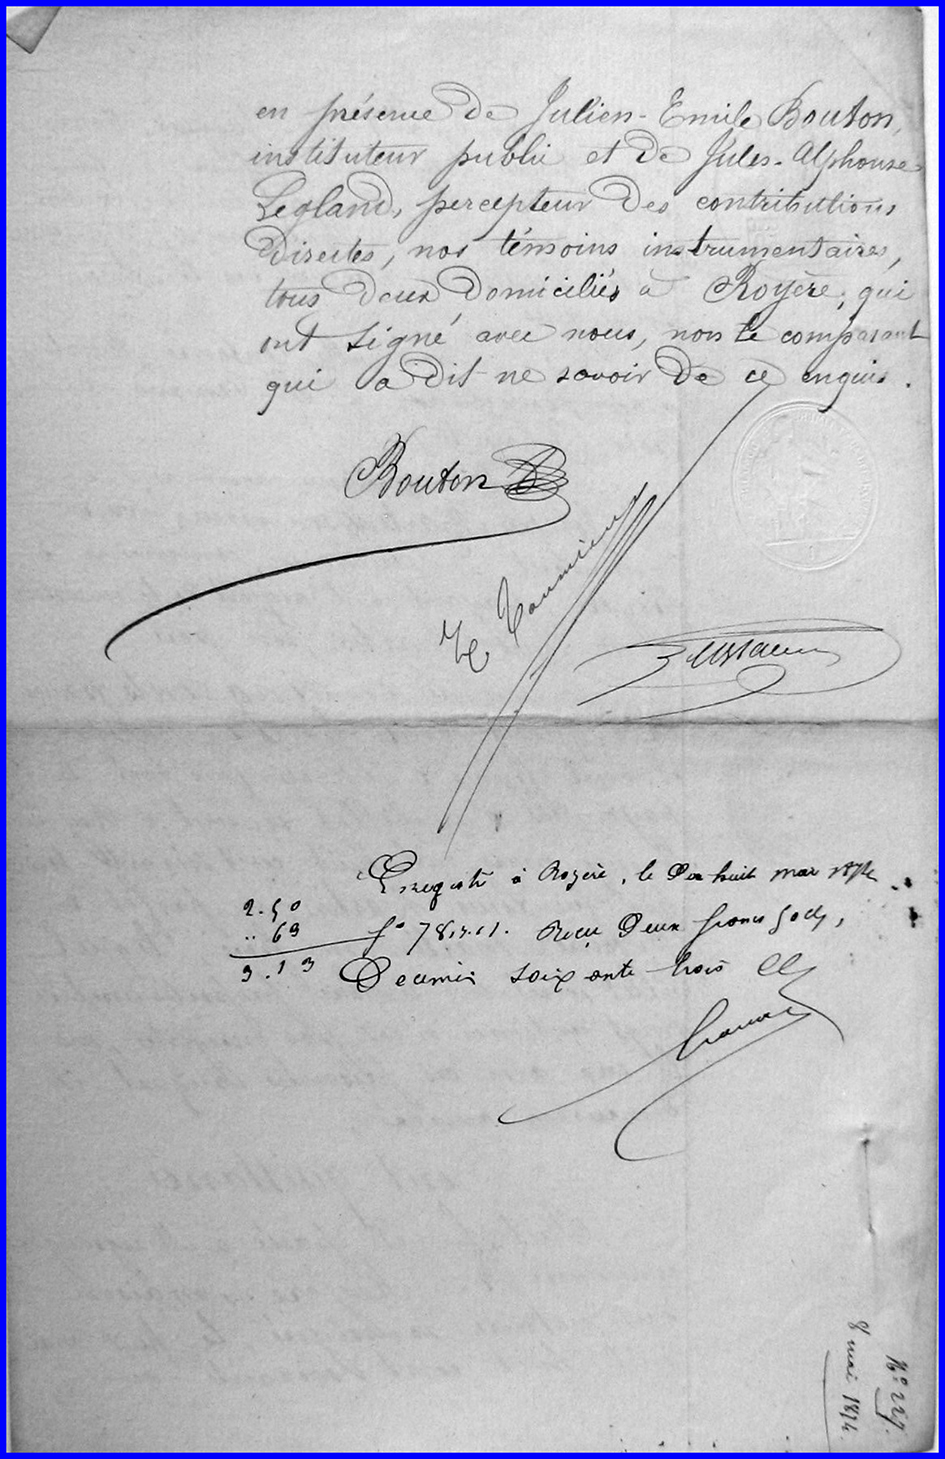 en présence de Julien-Emile Bouton,
instituteur public et de Jules-Alphonse
Legland, percepteur des contributions
directes, nos témoins instrumentaires,
tous deux domiciliés à Royère, qui
ont signé avec nous, non le comparant
qui a dit ne savoir de ce enquis.
Bouton
Enregistré à Royère, le dix huit mai
2.50
.. 63
3.13
fo 78, Reçu deux francs
Decimes soixante trois
8 mai 1874